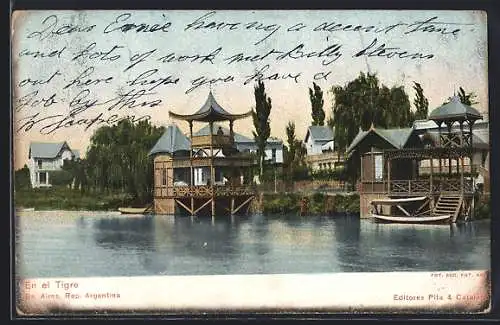 Dear Ernie having a decent time
and lots of work met Billy Stevens
out here hope you have a
Job by this time
W Jeapens
En el Tigro
Bs. Aires, Rep. Argentina
FOT. SOC. FOT. AF.
Editores Pita & Catalan